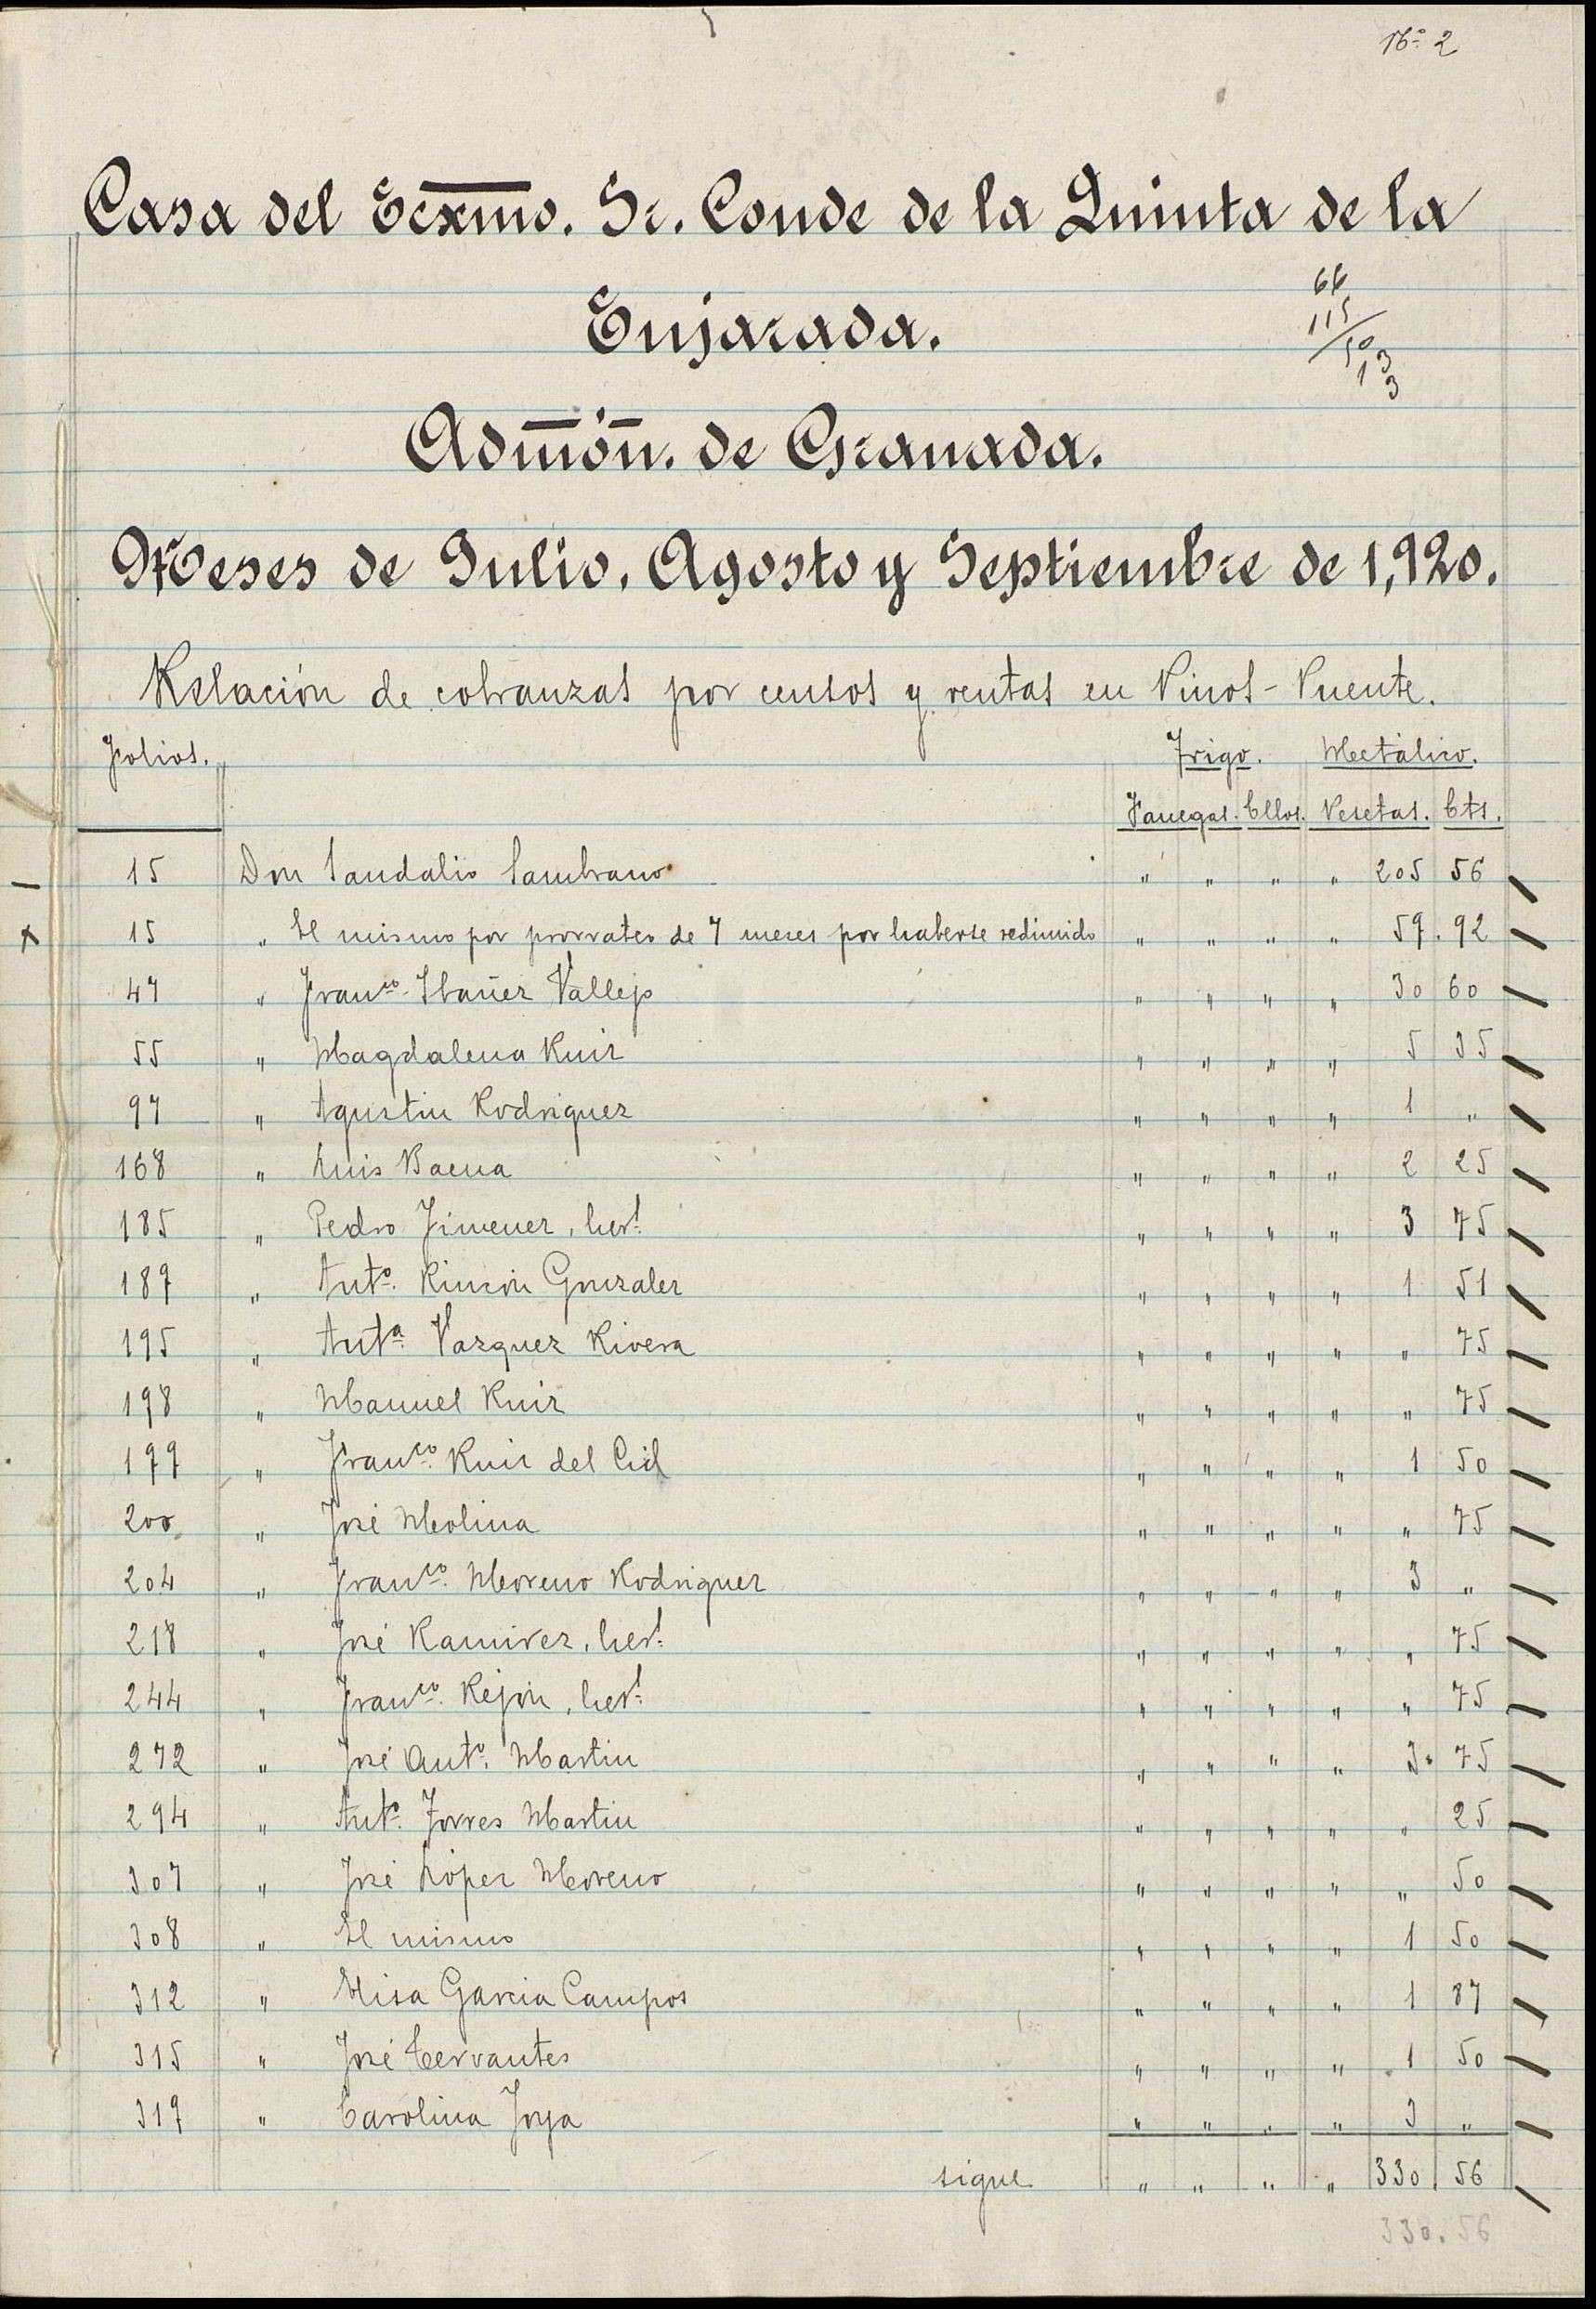 Nº 2
Casa del Ecxmo. Sr. Conde de la Quinta de la
Enjarada.
66
115
50
13
3
Admón. de Granada.
Meses de Julio, Agosto y Septiembre de 1,920.
Relación de cobranzas por censos y rentas en Pinos-Puente.
Folios. Trigo. Metálico.
Fanegas. Cllos. Pesetas. Cts.
15 Don Sandalio Sambrano " " " " 205 56
15 " El mismo por prorrateo de 7 meses por haberse redimido " " " " 59.92
47 " Franco. Ibañez Vallejo " " " " 30 60
55 " Magdalena Ruiz " " " " 5 35
97 " Agustin Rodriguez " " " " 1 "
168 " Luis Baena " " " " 2 25
185 " Pedro Jimenez, hers. " " " " 3 75
189 " Anto. Rincón Gonzalez " " " " 1 51
195 " Anta. Vazquez Rivera " " " " " 75
198 " Manuel Ruiz " " " " " 75
199 " Franco. Ruiz del Cid " " " " 1 50
200 " José Molina " " " " " 75
204 " Franco. Moreno Rodriguez " " " " 3 "
218 " José Ramirez, hers. " " " " " 75
244 " Franco. Rejón, hers. " " " " " 75
272 " José Anto. Martin " " " " 3. 75
294 " Anto. Torres Martin " " " " " 25
307 " José López Moreno " " " " " 50
308 " El mismo " " " " 1 50
312 " Elisa Garcia Campos " " " " 1 87
315 " José Cervantes " " " " 1 50
319 " Carolina Joya " " " " 3 "
sigue " " " " 330. 56
330.56